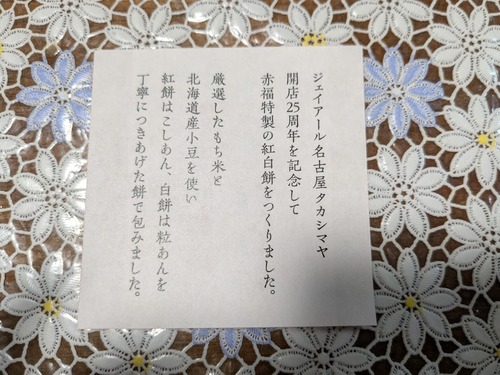 ジェイアール名古屋タカシマヤ
開店25周年を記念して
赤福特製の紅白餅をつくりました。
厳選したもち米と
北海道産小豆を使い
紅餅はこしあん、白餅は粒あんを
丁寧につきあげた餅で包みました。